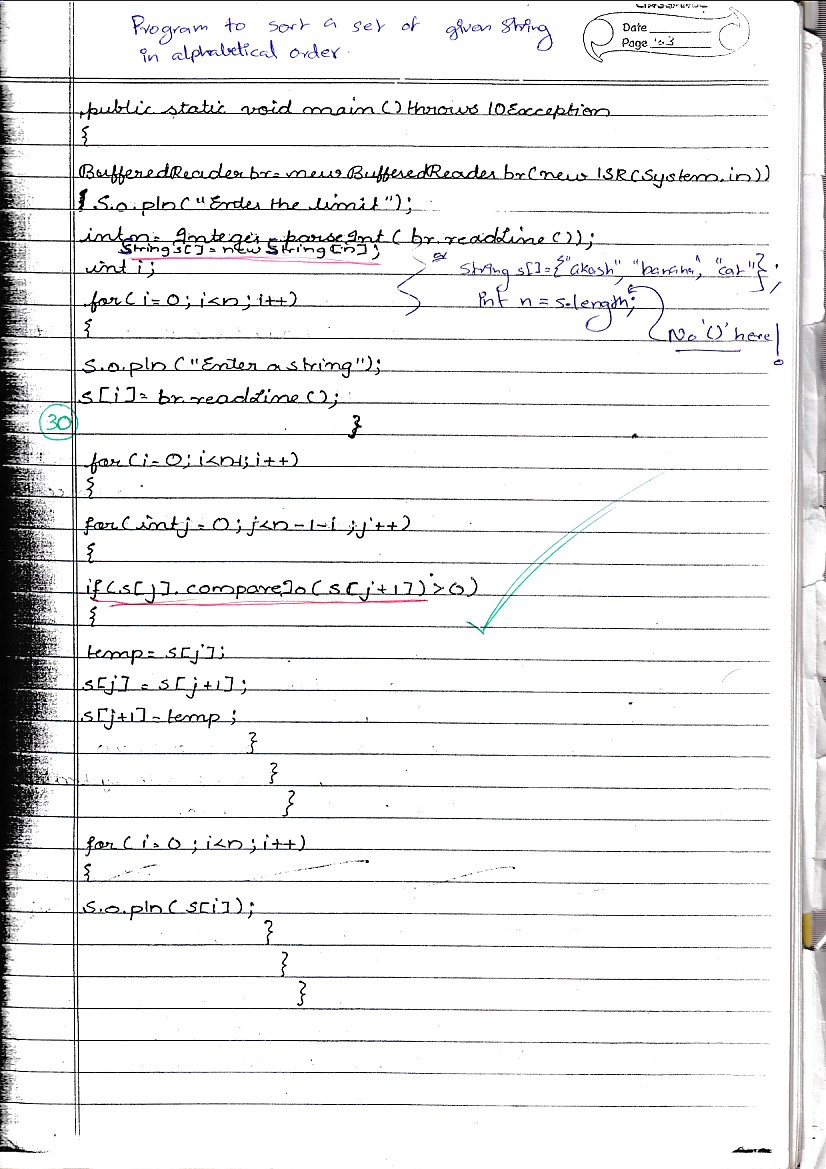 Program to sort a set of given string
in alphabetical order.
Date
Page
public static void main () throws IOException
{
BufferedReader br = new BufferedReader br (new ISR (System.in))
S.o.pln ("Enter the limit");
int n = Integer.parseInt (br.readLine ());
String s[] = new String [n];
int i;
or String s[] = {"akash", "banana", "cat"};
Int n = s.length;
No '()' here!
for (i=0; i<n; i++)
{
S.o.pln ("Enter a string");
s[i] = br.readLine ();
30
}
for (i=0; i<n-1; i++)
{
for (int j=0; j<n-1-i; j++)
{
if (s[j].compareTo (s[j+1]) >0)
{
temp = s[j];
s[j] = s[j+1];
s[j+1] = temp;
}
}
}
for (i=0; i<n; i++)
{
S.o.pln (s[i]);
}
}
}